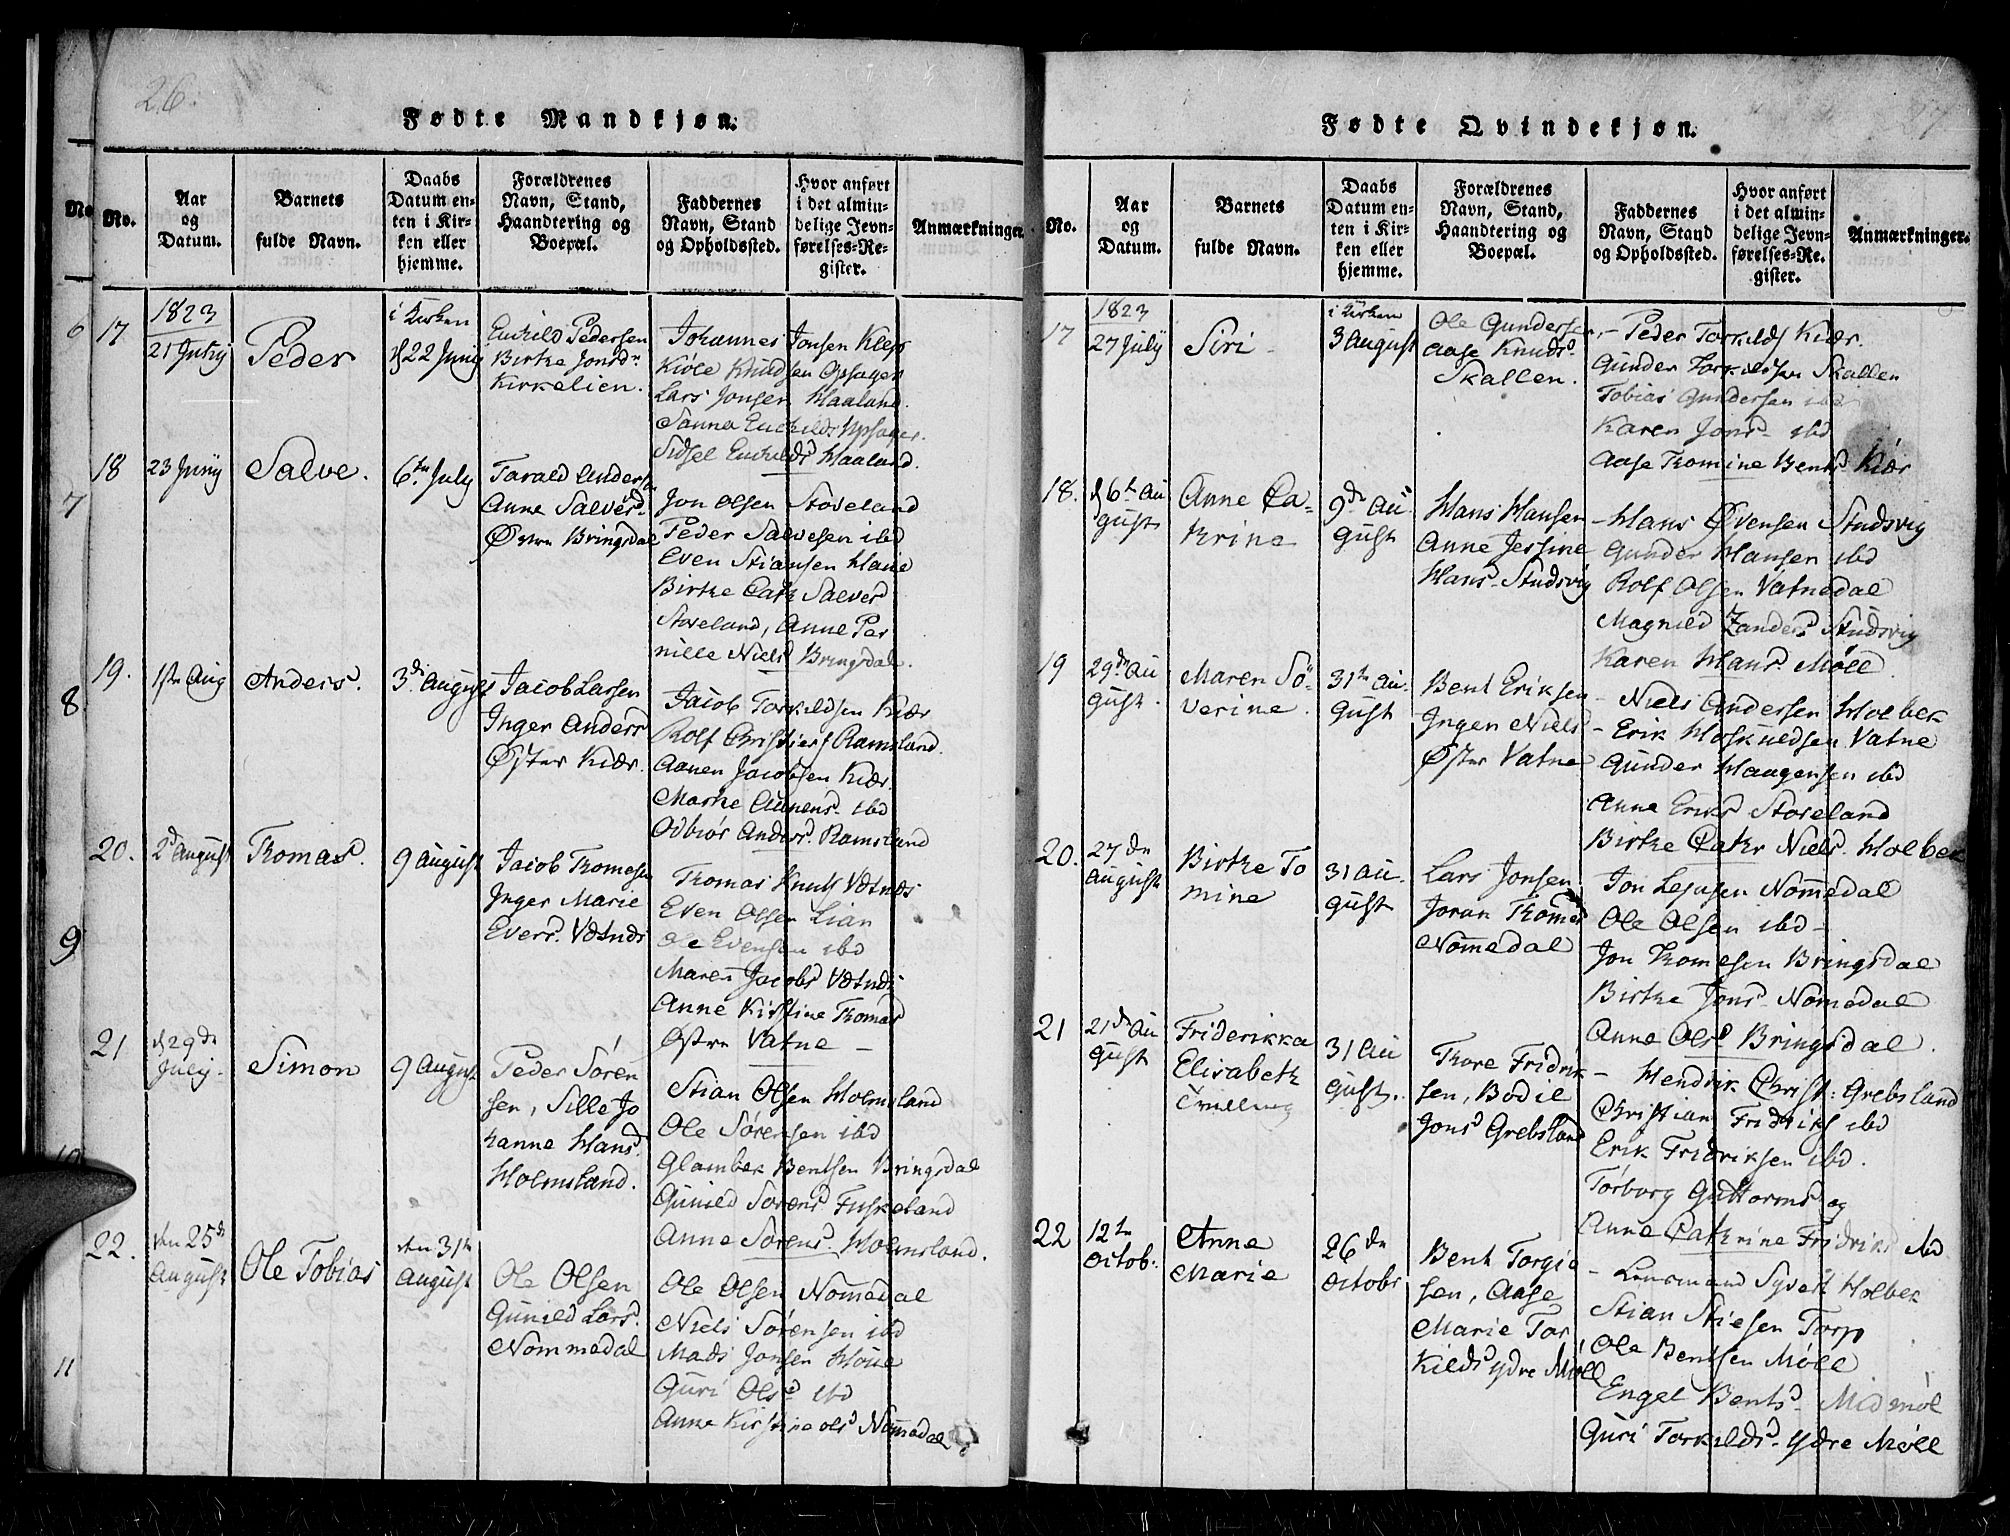 26.
Fødte Mandkjøn.
No.
Aar og Datum.
Barnets fulde Navn.
Daabs Datum enten i Kirken eller hjemme.
Forældrenes Navn, Stand, Haandtering og Boepæl.
Faddernes Navn, Stand og Opholdssted.
Hvor anført i det almindelige Jevnførelses-Register.
Anmærkninger
17
1823
21 Juny
Peder
i Kirken
d 22 Juny
Enchild Pedersen
Birthe Jonsdr
Kirkelien.
Johannes Jonsen Klep
Kiøle Knudsen Opsager
Lars Jonsen Haaland
Sanna Enchilds Upsager.
Sidsel Enchilds Haaland.
18
23 Juny
Salve.
6te July
Tarald Anders
Anne Salvesd.
Østre Bringsdal
Jon Olsen Stoveland
Peder Salvesen ibd
Even Stiansen Haue
Birthe Cath Salvesd
Stoveland, Anne Per
nille Niels Bringsdal.
19.
1ste Aug
Anders.
3de August
Jacob Larsen
Inger Andersd
Øster Kiær.
Jacob Torkildsen Kiær
Rolf Christiens Ramsland.
Aanen Jacobsen Kiær.
Marthe Aanensd. ibd
Odbiør Andersd. Ramsland
20.
2d August
Thomas.
9 August
Jacob Thomesen
Inger Marie
Eversd. Vætnes
Thomas Knuts Vætnes
Even Olsen Lian
Ole Evensen ibd
Maren Jacobs Vætnes
Anne Kirstine Thomasd
Østre Vatne —
21
d 29de
July.
Simon
9 August
Peder Søren
sen, Sille Jo
hanne Hansd.
Holmsland.
Stian Olsen Holmsland
Ole Sørensen ibd
Glambek Bentsen Bringsdal
Gunild Sørensd Fuskeland
Anne Sørensd. Holmsland.
22.
den 25de
August
Ole Tobias
den 31te
August
Ole Olsen
Gunild Larsd.
Nommedal
Ole Olsen Nomedal
Niels Sørensen ibd
Mads Jonsen Høue
Guri Olsd ibd
Anne Kirstine Olsd Nomedal
Fødte Qvindekjøn.
No.
Aar og Datum.
Barnets fulde Navn.
Daabs Datum enten i Kirken eller hjemme.
Forældrenes Navn, Stand, Haandtering og Boepæl.
Faddernes Navn, Stand og Opholdssted.
Hvor anført i det almindelige Jevnførelses-Register.
Anmærkninger.
17
1823
27 July
Siri
i Kirken
3 August
Ole Gundersen
Aase Knuds.
Skallen.
Peder Torkilds Kiær.
Gunder Torkildsen Skallen
Tobias Gundersen ibd
Karen Jonsd. ibd
Aase Thomine Bentsd Kiær
18.
d 6te Au
gust
Anne Ca-
thrine
9de Au
gust
Hans Hansen
Anne Jessine
Hansd. Studsvig
Hans Øvensen Studsvig
Gunder Hansen ibd
Rolf Olsen Vatnedal
Magnild Zanders Studsvig
Karen Hansd Møll
19
29de Au
gust.
Maren Sö-
verine.
31te Au-
gust
Bent Eriksen
Inger Niels
Øster Vatne
Niels Andersen Holbek
Erik Hoskuldsen Vatne
Gunder Haagensen ibd
Anne Eriksd Stoveland
Birthe Cathr Nielsd. Holbek
20.
27de
August
Birthe To
mine
31 Au-
gust
Lars Jonsen
Joran Thomes
Nomedal
Jon Lejusen Nomedal
Ole Olsen ibd —
Jon Thomesen Bringsdal
Birthe Jonsd. Nomedal
Anne Olsd Bringsdal.
21
21de Au
gust
Friderikka
Elisabeth
Tvilling
31 Au
gust.
Thore Fridrik
sen, Bodil
Jonsd Grebsland
Hendrik Christ: Grebsland
Christian Fridriks ibd
Erik Fridriksen ibd.
Torborg Guttormsd og
Anne Cathrine Fridriksd ibd
22
12te
Octob.
Anne
Marie
26de
Octobr
Bent Torgie
sen, Aase
Marie Tor
Kildsd ydre Møll
Lensmand Syvert Holbek
Stian Stiesen Torp
Ole Bentsen Møll
Engel Bentsd. Midmøl
Guri Torkildsd. ydre Møll
6
7
8
9
10
11